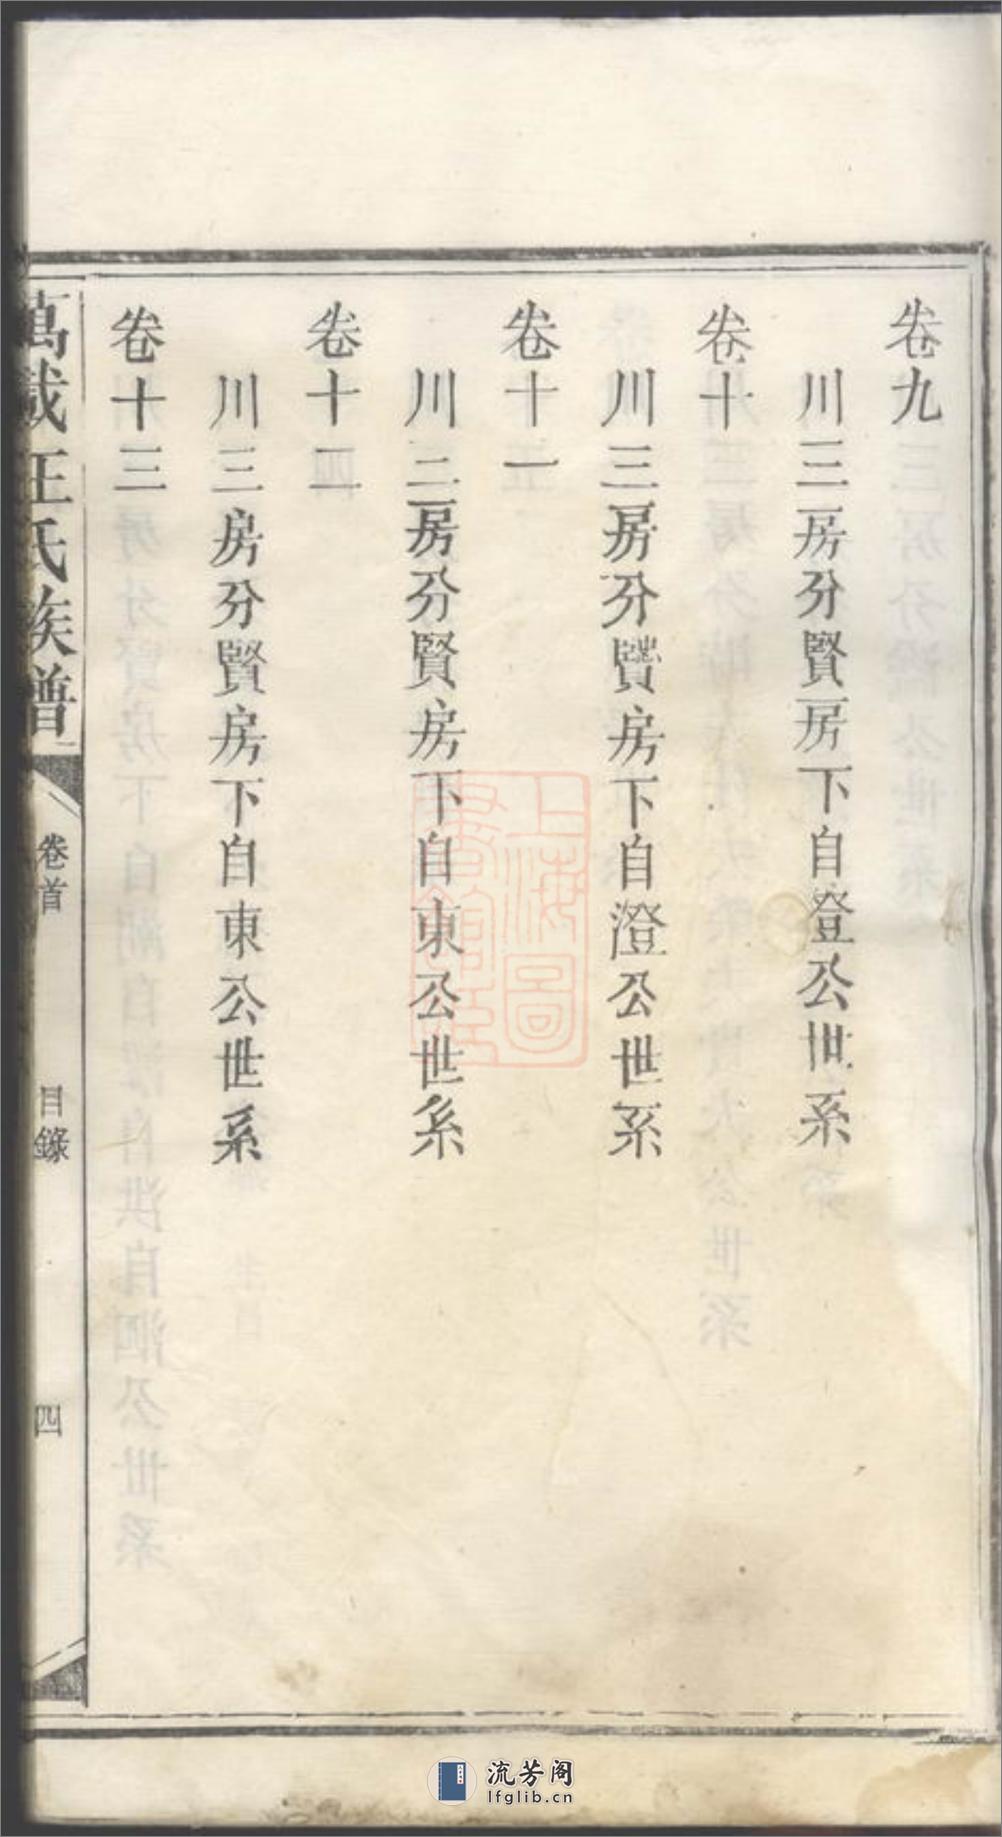 卷九
川三房分賢房下自澄公世系
卷十
川三房分賢房下自澄公世系
卷十一
川二房分賢房下自東公世系
卷十二
川三房分賢房下自東公世系
卷十三
萬載汪氏族譜
卷首
目錄
四
上海圖書館藏
流芳阁
lfglib.cn